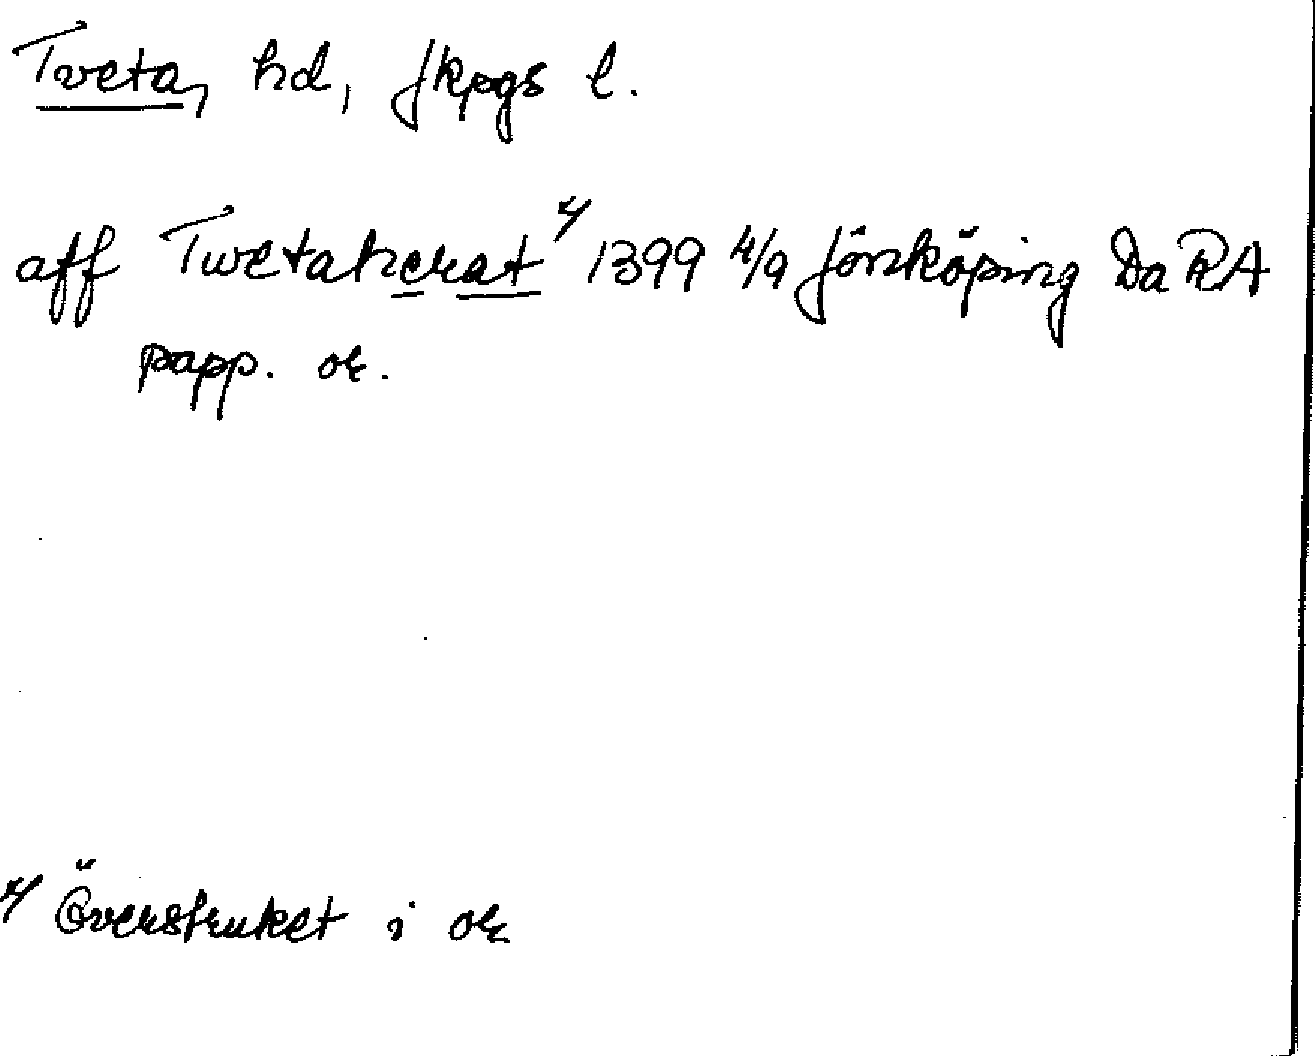 Tveta, hd, Jkpgs l.
aff Twetaherat x/ 1399 4/9 Jönköping Da RA
papp. or.
x/ Överstruket i or